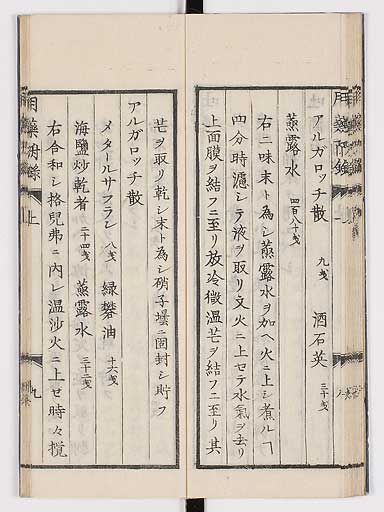 アルガロッチ散 九戔 酒石英 三十戔
蒸露水 四百八十戔
右三味末ト為シ蒸露水ヲ加ヘ火ニ上シ煮ルヿ
四分時濾シテ液ヲ取リ文火ニ上セテ水氣ヲ去リ
上面膜ヲ結フニ至リ放冷微温芒ヲ結フニ至リ其
芒ヲ取リ乾シ末ト為シ硝子壜ニ固封シ貯フ
アルガロッチ散
メタールサフラン 八戔 緑礬油 十六戔
海鹽炒乾者 二十四戔 蒸露水 三十二戔
右合和シ格兒弗ニ内レ温沙火ニ上セ時々攪
用藥附録 上 九